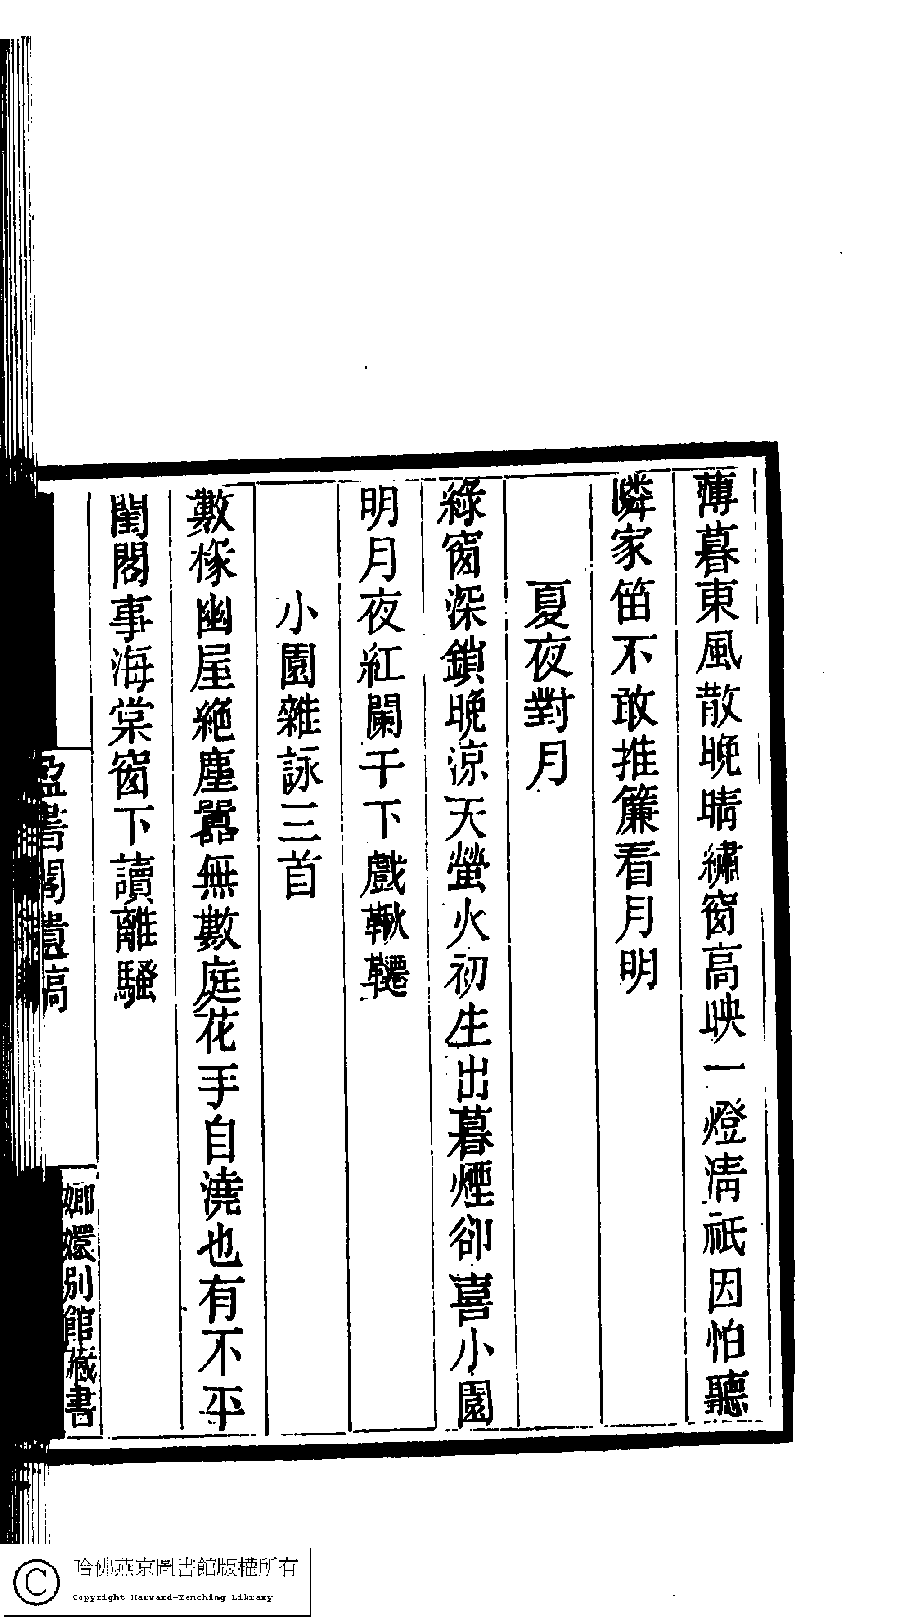 薄暮東風散晚晴繡窗高映一燈淸祗因怕聽
鄰家笛不敢推簾看月明
夏夜對月
綠窗深鎖晚涼天螢火初生出暮煙卻喜小園
明月夜紅闌干下戲鞦韆
小園雜詠三首
數椽幽屋絶塵囂無數庭花手自澆也有不平
閨閣事海棠窗下讀離騷
盈書閣遺稿
嫏嬛別館藏書
哈佛燕京圖書館版權所有
Copyright Harvard-Yenching Library